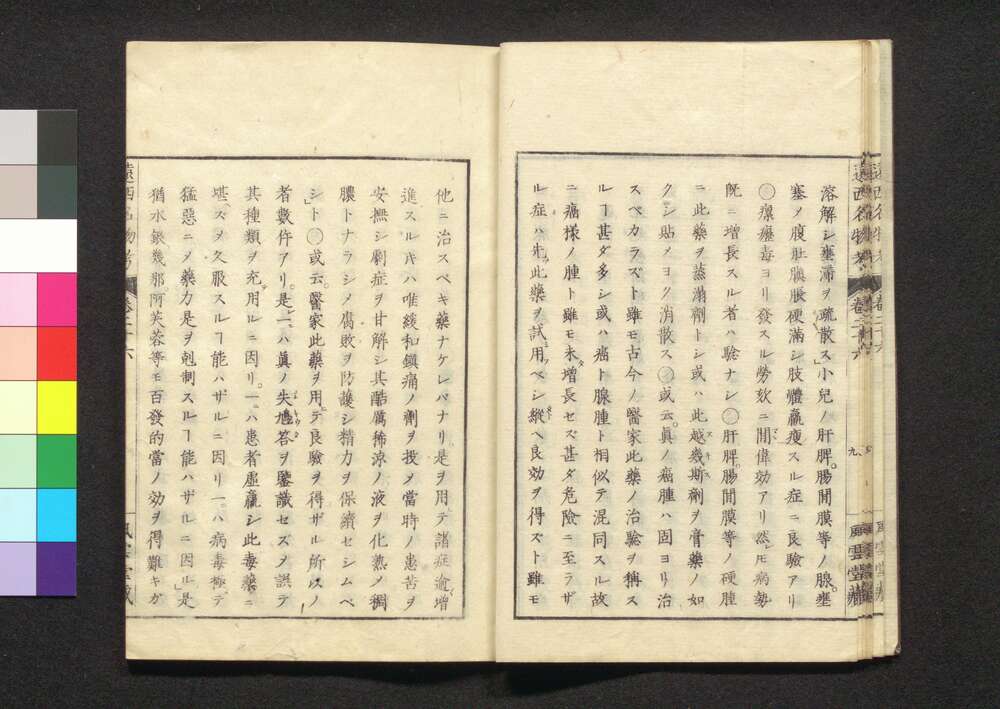 溶解シ壅滯ヲ疏散ス」小兒ノ肝脾。腸間膜等ノ腺。壅
塞ノ腹肚膹脹硬滿シ肢體羸瘦スル症ニ良驗アリ
瘰癧毒ヨリ發スル勞欬ニ間偉効アリ然ㇳモ病勢
既ニ增長スル者ハ驗ナシ○肝脾。腸間膜等ノ硬腫
ニ此藥ヲ蒸溻劑トシ或ハ此越幾斯劑ヲ膏藥ノ如
クシ貼メヨク消散ス○或云。眞ノ癌腫ハ固ヨリ治
スベカラズト雖モ古今ノ醫家此藥ノ治驗ヲ稱ス
ルヿ甚ダ多シ或ハ癌ト腺腫ト相似テ混同スル故
ニ癌様ノ腫ト雖モ未增長セズ甚タ危險ニ至ラザ
ル症ハ先此藥ヲ試用ベシ縱ヘ良効ヲ得ズト雖モ
遠西名物考 卷二十六 九 風雲堂藏
他ニ治スベキ藥ナケレバナリ是ヲ用テ諸症逾增
進スルㇳキハ唯緩和鎭痛ノ劑ヲ投メ當時ノ患苦ヲ
安撫シ劇症ヲ甘解シ其酷厲稀涼ノ液ヲ化熟メ稠
膿トナラシメ腐敗ヲ防護シ精力ヲ保續セシムベ
シ」ト○或云。醫家此藥ヲ用テ良驗ヲ得ザル所以ノ
者數件アリ。是一ハ眞ノ失鳩答ヲ鑒識セズメ誤テ
其種類ヲ充用ルニ因リ。一ハ患者虛羸シ此毒藥ニ
堪ズメ久服スルヿ能ハザルニ因リ一ハ病毒極テ
猛惡ニメ藥力是ヲ剋制スルヿ能ハザルニ因ル」是
猶水銀幾那阿芙蓉等モ百發的當ノ効ヲ得難キガ
遠西名物考 卷二十六 風雲堂藏